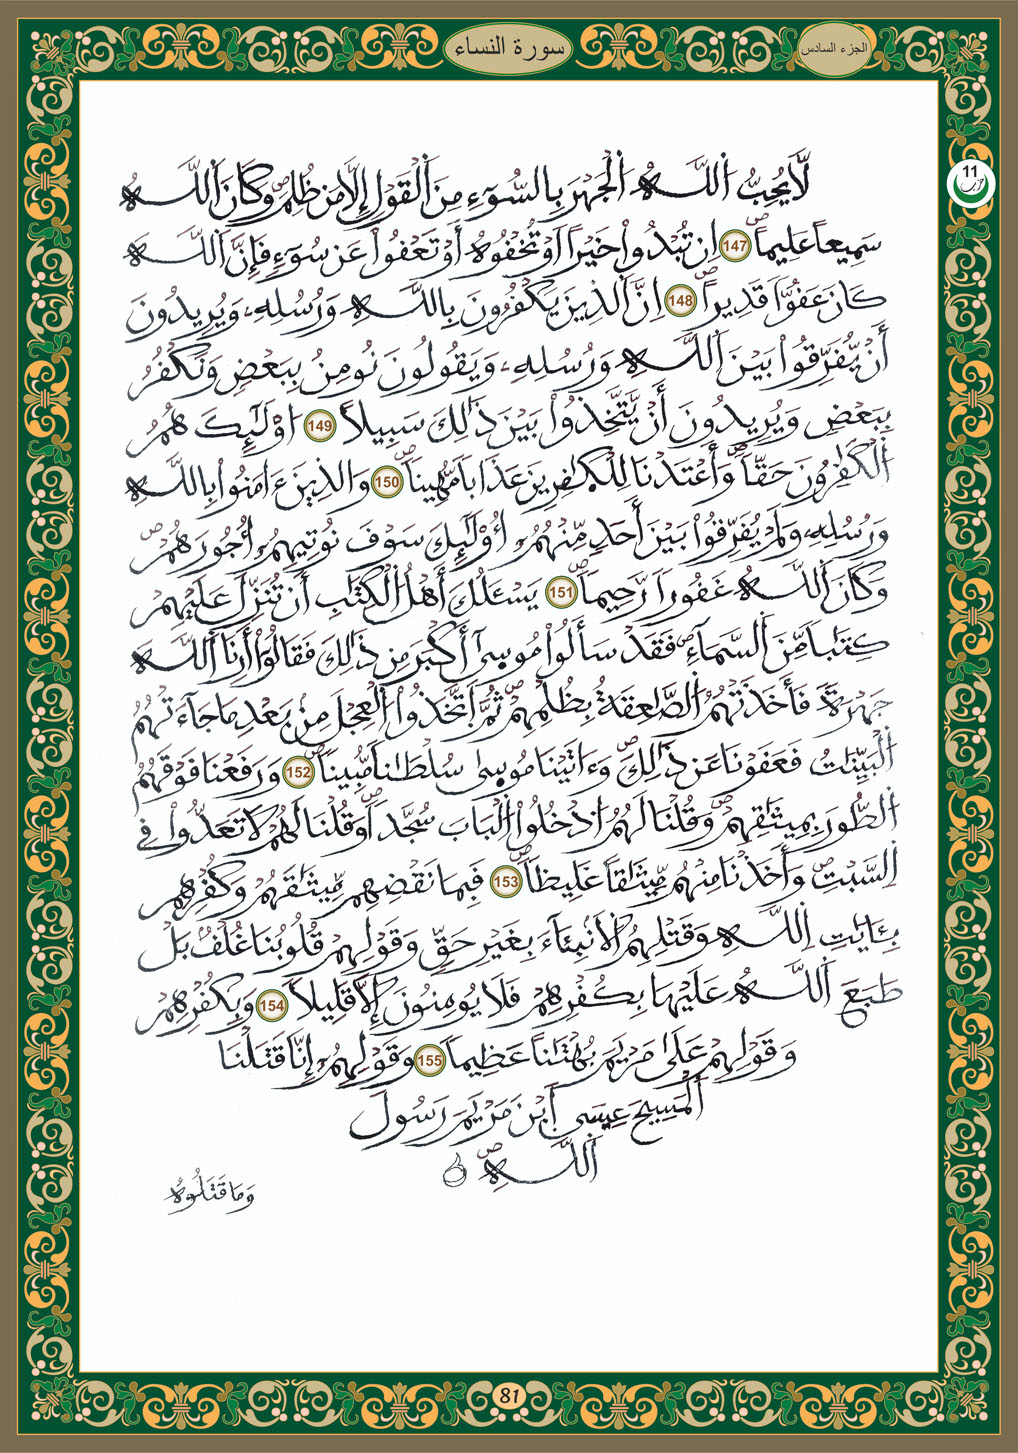 الجزء السادس
سورة النساء
11
لَّا يُحِبُّ اُ۬للَّهُ اُ۬لْجَهْرَ بِالسُّوٓءِ مِنَ اَ۬لْقَوْلِ إِلَّا مَن ظُلِمَۖ وَكَانَ اَ۬للَّهُ
سَمِيعاً عَلِيماًۖ 147 اِن تُبْدُواْ خَيْراً اَوْ تُخْفُوهُ أَوْ تَعْفُواْ عَن سُوٓءٖ فَإِنَّ اَ۬للَّهَ
كَانَ عَفُوّاٗ قَدِيراًۖ 148 اِنَّ اَ۬لذِينَ يَكْفُرُونَ بِاللَّهِ وَرُسُلِهِۦ وَيُرِيدُونَ
أَنْ يُّفَرِّقُواْ بَيْنَ اَ۬للَّهِ وَرُسُلِهِۦ وَيَقُولُونَ نُومِنُ بِبَعْضٖ وَنَكْفُرُ
بِبَعْضٖ وَيُرِيدُونَ أَنْ يَّتَّخِذُواْ بَيْنَ ذَٰلِكَ سَبِيلاً 149 اوْلَٰٓئِكَ هُمُ
اُ۬لْكَٰفِرُونَ حَقّاٗۖ وَأَعْتَدْنَا لِلْكَٰفِرِينَ عَذَاباٗ مُّهِيناٗۖ 150 وَالذِينَ ءَامَنُواْ بِاللَّهِ
وَرُسُلِهِۦ وَلَمْ يُفَرِّقُواْ بَيْنَ أَحَدٖ مِّنْهُمُۥٓ أُوْلَٰٓئِكَ سَوْفَ نُوتِيهِمُۥٓ أُجُورَهُمْۖ
وَكَانَ اَ۬للَّهُ غَفُوراٗ رَّحِيماٗۖ 151 يَسْـَٔلُكَ أَهْلُ اُ۬لْكِتَٰبِ أَن تُنَزِّلَ عَلَيْهِمْ
كِتَٰباٗ مِّنَ اَ۬لسَّمَآءِۖ فَقَدْ سَأَلُواْ مُوسَىٰٓ أَكْبَرَ مِن ذَٰلِكَ فَقَالُوٓاْ أَرِنَا اَ۬للَّهَ
جَهْرَةٗ فَأَخَذَتْهُمُ اُ۬لصَّٰعِقَةُ بِظُلْمِهِمْۖ ثُمَّ اَ۪تَّخَذُواْ اُ۬لْعِجْلَ مِنۢ بَعْدِ مَا جَآءَتْهُمُ
اُ۬لْبَيِّنَٰتُ فَعَفَوْنَا عَن ذَٰلِكَۖ وَءَاتَيْنَا مُوسَىٰ سُلْطَٰناٗ مُّبِيناٗۖ 152 وَرَفَعْنَا فَوْقَهُمُ
اُ۬لطُّورَ بِمِيثَٰقِهِمْۖ وَقُلْنَا لَهُمُ اُ۟دْخُلُواْ اُ۬لْبَابَ سُجَّداٗۖ وَقُلْنَا لَهُمْ لَا تَعَدُّواْ فِے
اِ۬لسَّبْتِۖ وَأَخَذْنَا مِنْهُم مِّيثَٰقاً غَلِيظاٗۖ 153 فَبِمَا نَقْضِهِم مِّيثَٰقَهُمْ وَكُفْرِهِم
بِـَٔايَٰتِ اِ۬للَّهِ وَقَتْلِهِمُ اُ۬لَانۢبِئَآءَ بِغَيْرِ حَقّٖ وَقَوْلِهِمْ قُلُوبُنَا غُلْفُۢ بَلْ
طَبَعَ اَ۬للَّهُ عَلَيْهَا بِكُفْرِهِمْ فَلَا يُومِنُونَ إِلَّا قَلِيلاٗ 154 وَبِكُفْرِهِمْ
وَقَوْلِهِمْ عَلَىٰ مَرْيَمَ بُهْتَٰناً عَظِيماٗ 155 وَقَوْلِهِمُۥٓ إِنَّا قَتَلْنَا
اَ۬لْمَسِيحَ عِيسَى اَ۪بْنَ مَرْيَمَ رَسُولَ
اَ۬للَّهِۖ
وَمَا قَتَلُوهُ
81